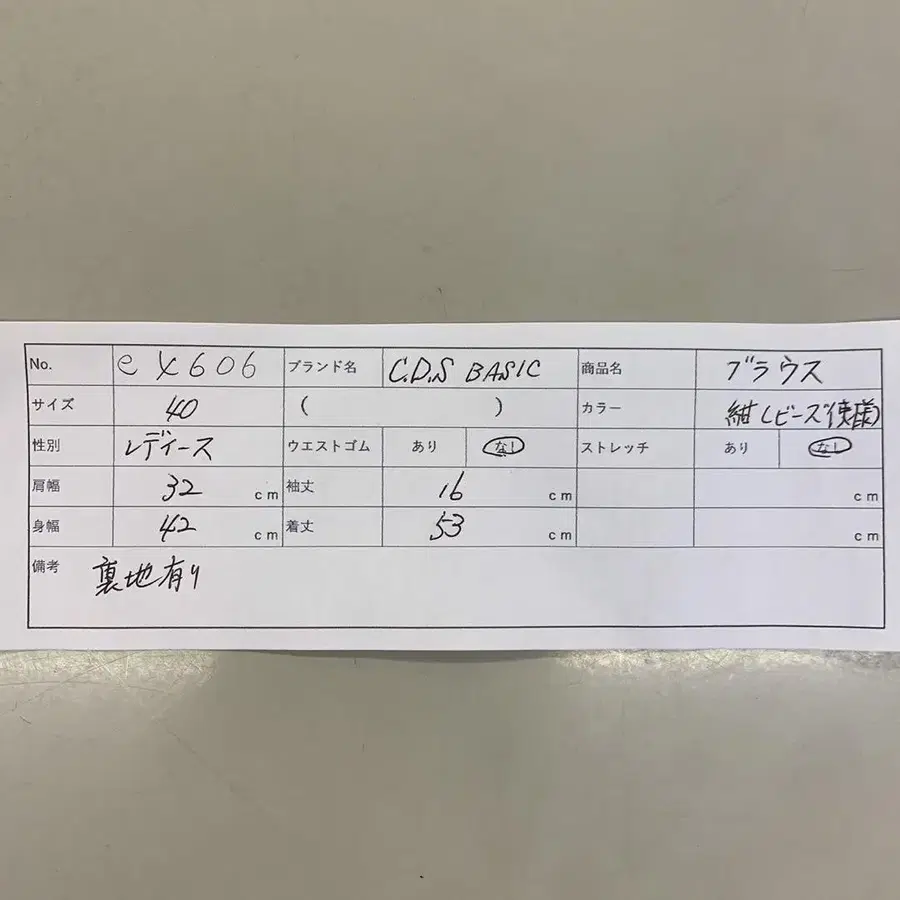 No. e X606 ブランド名 C.D.S BASIC 商品名 ブラウス
サイズ 40 ( ) カラー 紺(ビーズ使様)
性別 レディース ウエストゴム あり なし ストレッチ あり なし
肩幅 32 cm 袖丈 16 cm cm
身幅 42 cm 着丈 53 cm cm
備考 裏地有り